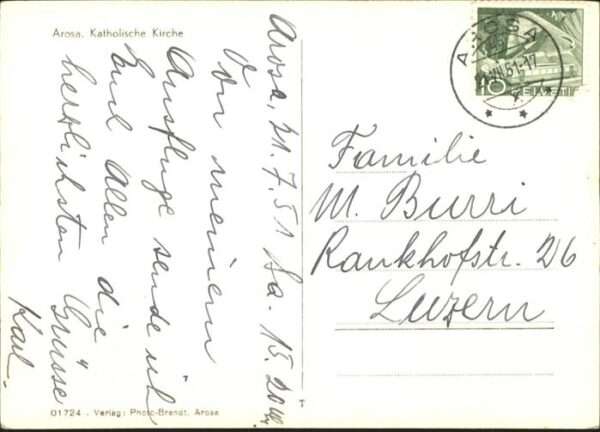 Arosa. Katholische Kirche
Arosa, 21.7.51 Sa. 15.20
Von meinem
Ausfluge sende ich
Euch Allen die
herzlichsten Grüsse
Karl.
01724 - Verlag: Photo-Brandt, Arosa
AROSA
VII.51.-17
10 HELVETIA
Familie
M. Burri
Rankhofstr. 26
Luzern